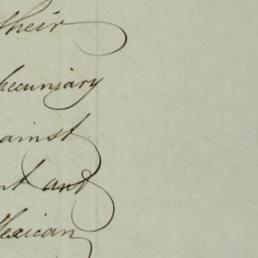 their
pecuniary
ainst
nt and
Mexican